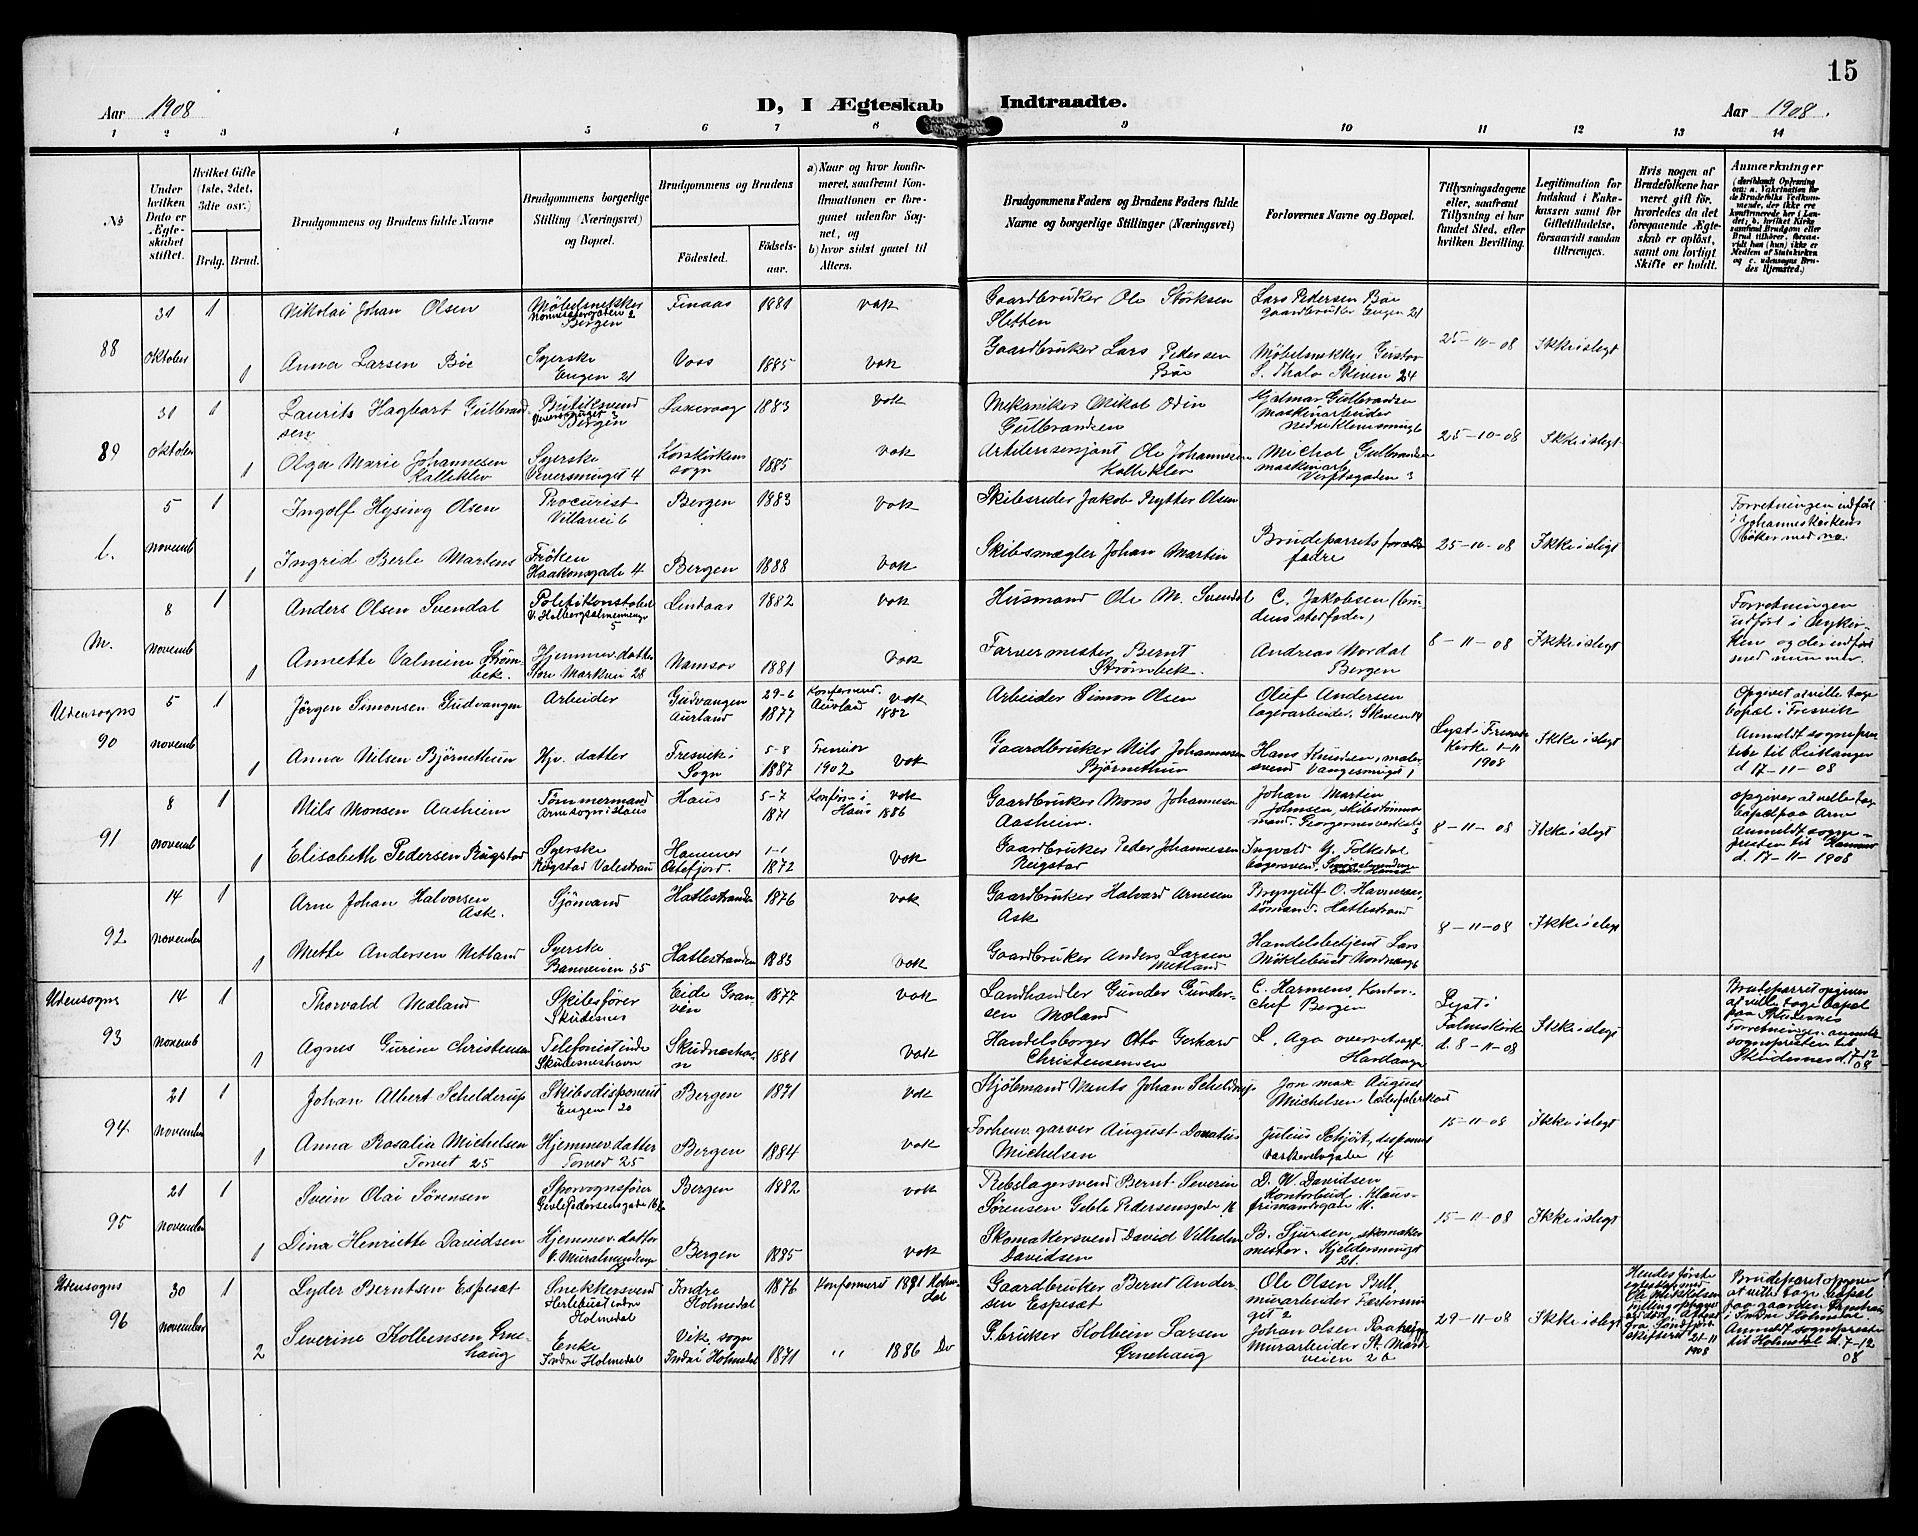 15
Aar 1908
D, I Ægteskab Indtraadte.
Aar 1908.
1 2 3 4 5 6 7 8 9 10 11 12 13 14
№
Under hvilken Dato er Ægteskabet stiftet.
Hvilket Gifte (1ste, 2det, 3die osv.)
Brdg. Brud.
Brudgommens og Brudens fulde Navne
Brudgommens borgerlige Stilling (Næringsvei) og Bopæl.
Brudgommens og Brudens
Fødested.
Fødselsaar.
a) Naar og hvor konfirmeret, saafremt Konfirmationen er foregaaet udenfor Sognet, og
b) hvor sidst gaaet til Alters.
Brudgommens Faders og Brudens Faders fulde Navne og borgerlige Stillinger (Næringsvei)
Forlovernes Navne og Bopæl.
Tillysningsdagene eller, saafremt Tillysning ei har fundet Sted, efter hvilken Bevilling.
Legitimation for Indskud i Enkekassen samt for Giftetilladelse, forsaavidt saadan tiltrænges.
Hvis nogen af Brudefolkene har været gift før, hvorledes da det foregaaende Ægteskab er opløst, samt om lovligt Skifte er holdt.
Anmærkninger
(deriblandt Oplysning om: a. Vakcination for de Brudefolks Vedkommende, der ikke ere konfirmerede her i Landet; b. hvilket Kirkesamfund Brudgom eller Brud tilhører, forsaavidt han (hun) ikke er Medlem af Statskirken og c. udensogns Brudes Hjemsted.)
88
31 oktober
1
Nikolai Johan Olsen
Møbelsnekker
Bergen
Finaas
1881
vak
Gaardbruker Ole Størksen
Sletten
Lars Pedersen Bøe
Gaardbruker Engen 21
25-10-08
Ikke i slegt
1
Anna Larsen Bøe
Syerske
Engen 21
Voss
1885
vak
Gaardbruker Lars Pedersen
Bøe
Møbelsnekker Gustav
S. Thalo Skiven 24
89
31 oktober
1
Laurits Hagbart Gulbrandsen
Butiksvend
Veversmuget 3
Bergen
Laxevaag
1883
vak
Mekaniker Nikol Odin
Gulbrandsen
Hjalmar Gulbrandsen
maskinarbeider
25-10-08
Ikke i slegt
1
Olga Marie Johannesen
Kalleklev
Syerske
Veversmuget 4
Korskirkens
sogn
1885
vak
Artillerisersjant Ole Johannesen
Kalleklev
Michal Gulbrandsen
maskinarb.
Verftsgaden 3
L.
5 novemb
1
Ingolf Hysing Olsen
Procurist
Villavei 6
Bergen
1883
vak
Skibsreder Jakob Rytter Olsen
Brudeparrets
fædre
25-10-08
Ikke i slegt
Forretningen indført
i Johanneskirkens
bøker med no.
1
Ingrid Berle Martens
Frøken
Haakonsgade 4
Bergen
1888
vak
Skibsmægler Johan Martin
M.
8 novemb
1
Anders Olsen Svendal
Politikonstabel
V. Holbergsalmenningen
5
Lindaas
1882
vak
Husmand Ole M. Svendal
C. Jakobsen (brudens stedfader)
8-11-08
Ikke i slegt
Forretningen
utført i Nykirken og der indført
med nummer.
1
Annette Valmine Strømbek.
Hjemmev. datter
Store Markvei 28
Namsos
1881
vak
Farvermester Bernt
Strømbek.
Andreas Nordal
Bergen
Udensogns
90
5 novemb
1
Jørgen Simonsen Gudvangen
Arbeider
Gudvangen
Aurland
29-6
1877
Konfermeret
Aurland 1882
vak
Arbeider Simon Olsen
Oleif Andersen
lagerarbeider. Skiven 14
Lyst i Fresvik
Kirke 1-11
1908
Ikke i slegt
Opgivet at ville tage
bopæl i Fresvik
Anmeldt sogneprestebe til Leikanger
d. 17-11-08
1
Anna Nilsen Bjørnethun
Hjv. datter
Fresvik i
Sogn
5-8
1887
Fresvik
1902
vak
Gaardbruker Nils Johannesen
Bjørnethun
Hans Knudsen, malersvend Vangesmuget 1
91
8 novemb
1
Nils Monsen Aasheim
Tømmermand
Arne sogn i Haus
Haus
5-7
1871
Konferm. i
Haus 1886
vak
Gaardbruker Mons Johannesen
Aasheim.
Johan Martin
Johnsen, skibstømmermand. Georgernesverket 3
8-11-08
Ikke i slegt
opgiver at ville tage
bopæl paa Arne
anmeldt sognepresten til Hammer
d. 17-11-1908
1
Elisabeth Pedersen Rugstad
Syerske
Røgstad Valestrand
Hammer
Ostefjord.
1-1
1872
vak
Gaardbruker Peder Johannesen
Reigstad
Ingvald G. Folkedal
bagersvend,
92
14 november
1
Arne Johan Halvorsen
Ask.
Sjømand
Hatlestranden
1876
vak
Gaardbruker Halvard Arnesen
Ask
Bryngulf O. Havnerås,
sømand. Hatlestrand
8-11-08
Ikke i slegt
1
Mette Andersen Netland
Syerske
Banneien 35
Hatlestranden
1883
vak
Gaardbruker Anders Larsen
Netland
Handelsbetjent Lars
Møklebust Nordnæsgt
Udensogns
93
14 novemb
1
Thorvald Mæland
Skibsfører
Skudesnes
Eide Granven
1877
vak
Landhandler Gunder Gundersen Mæland
C. Harmens, Kontorchef Bergen
Lyst i
Falnes kirke
d. 8-11-08
Ikke i slegt
Brudeparret opgiver
at ville tage bopæl
paa Skudesnes
Forretningen anmeldt
sognepresten til
Skudesnes d. 7-12
08
1
Agnes Gurine Christensen
Telefonistinde
Skudesneshavn
Skudneshavn
1881
vak
Handelsborger Otto Gerhard
Christensensen
L. Aga overretssagf.
Hardanger
94
21 november
1
Johan Albert Schelderup
Skibsdisponent
Engen 20
Bergen
1871
vak
Skjølsmand Ments Johan Schelderup
Jon max August
Michelsen læderfabrikant
15-11-08
Ikke i slegt
1
Anna Rosalia Michelsen
Torvet 25
Hjemmev. datter
Torvet 25
Bergen
1884
vak
Forhenv. garver August Donatius
Michelsen
Julius Schjøtt, disponent
Vaskerelvgaden 14
95
21 november
1
Svein Olai Sørensen
Sporvognsfører
Geble Pedersensgade 16
Bergen
1882
vak
Rebslagersvend Bernt Severin
Sørensen Geble Pedersensgade 16
D. W. Davidsen
Kontorbud. Klausfrimandsgade 11.
15-11-08
Ikke i slegt
1
Dina Henriette Davidsen
Hjemmev. datter
V. Muralmenningen
Bergen
1885
vak
Skomakersvend David Vilhelm
Davidsen
B. Sjursen, skomakermester. Kjeldersmuget
21.
Udensogns
96
30 november
1
Lyder Berntsen Espesæt
Snekkersvend
Herlebust indre
Holmedal
Indre
Holmedal
1876
Konfermeret 1891 Holmedal
Gaardbruker Bernt Andersen Espesæt
Ole Olsen Bell,
murarbeider Fæstersmuget 2
29-11-08
Ikke i slegt
Hendes første
egteskap med
Ole Mikkelsen
Brudeparret opgiver
at ville tage bopæl
paa gaarden
i Indre Holmedal
Anmeldt sognepresten
til Holmedal d. 7-12
08
2
Severine Kolbensen Ørnehaug
Enke
Indre Holmedal
Vik sogn
Indre Holmedal
1871
" 1886 Do
G.bruker Kolbein Larsen
Ørnehaug
Johan Olsen
Murarbeider St. Markveien 2 b
21-11
1908